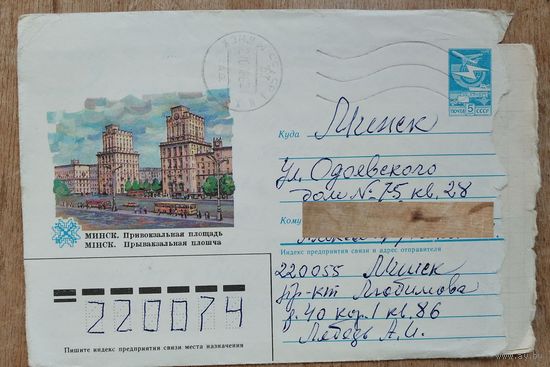 ПОЧТА СССР
5
Куда
Минск
ул. Одоевского
дом № 75 кв. 28
Кому
Индекс предприятия связи и адрес отправителя
220055 Минск
пр-кт Любимова
д. 40 кор. 1 кв. 86
Лебедь А.И.
МИНСК. Привокзальная площадь
МІНСК. Прывакзальная плошча
220074
Пишите индекс предприятия связи места назначения
www.ay.by